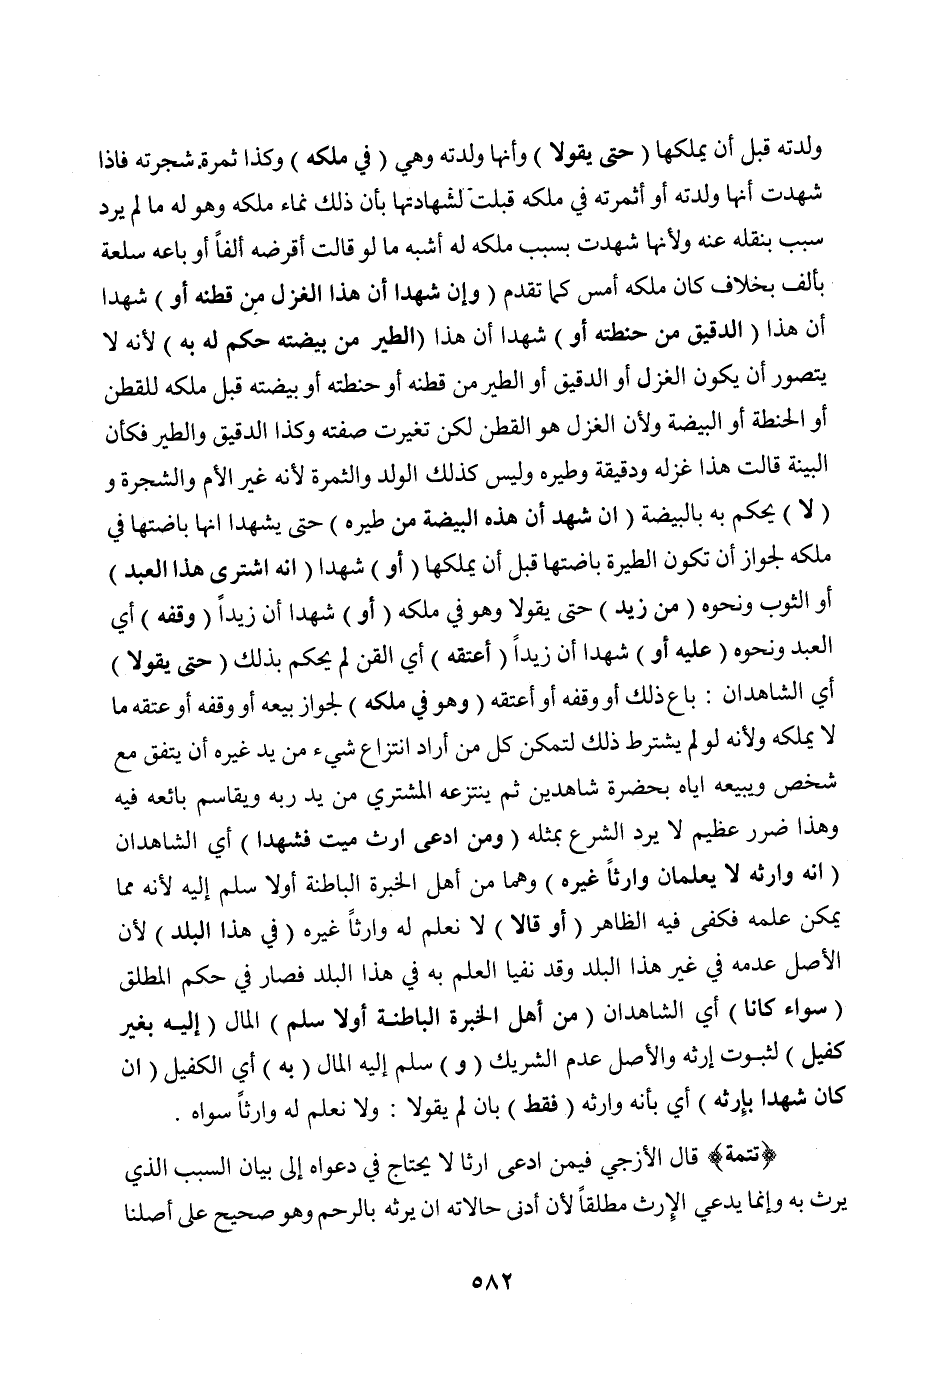 ولدته قبل أن يملكها ( حتى يقولا ) وأنها ولدته وهي ( في ملكه ) وكذا ثمرة شجرته فاذا
شهدت أنها ولدته أو أثمرته في ملكه قبلت لشهادتها بأن ذلك نماء ملكه وهو له ما لم يرد
سبب بنقله عنه ولأنها شهدت بسبب ملكه له أشبه ما لو قالت أقرضه ألفاً أو باعه سلعة
بألف بخلاف كان ملكه أمس كما تقدم ( وإن شهدا أن هذا الغزل من قطنه أو ) شهدا
أن هذا ( الدقيق من حنطته أو ) شهدا أن هذا (الطير من بيضته حكم له به ) لأنه لا
يتصور أن يكون الغزل أو الدقيق أو الطير من قطنه أو حنطته أو بيضته قبل ملكه للقطن
أو الحنطة أو البيضة ولأن الغزل هو القطن لكن تغيرت صفته وكذا الدقيق والطير فكأن
البينة قالت هذا غزله ودقيقة وطيره وليس كذلك الولد والثمرة لأنه غير الأم والشجرة و
( لا ) يحكم به بالبيضة ( ان شهد أن هذه البيضة من طيره ) حتى يشهدا انها باضتها في
ملكه لجواز أن تكون الطيرة باضتها قبل أن يملكها ( أو ) شهدا ( انه اشترى هذا العبد )
أو الثوب ونحوه ( من زيد ) حتى يقولا وهو في ملكه ( أو ) شهدا أن زيداً ( وقفه ) أي
العبد ونحوه ( عليه أو ) شهدا أن زيداً ( أعتقه ) أي القن لم يحكم بذلك ( حتى يقولا )
أي الشاهدان : باع ذلك أو وقفه أو أعتقه ( وهو في ملكه ) لجواز بيعه أو وقفه أو عتقه ما
لا يملكه ولأنه لو لم يشترط ذلك لتمكن كل من أراد انتزاع شيء من يد غيره أن يتفق مع
شخص ويبيعه اياه بحضرة شاهدين ثم ينتزعه المشتري من يد ربه ويقاسم بائعه فيه
وهذا ضرر عظيم لا يرد الشرع بمثله ( ومن ادعى ارث ميت فشهدا ) أي الشاهدان
( انه وارثه لا يعلمان وارثاً غيره ) وهما من أهل الخبرة الباطنة أولا سلم إليه لأنه مما
يمكن علمه فكفى فيه الظاهر ( أو قالا ) لا نعلم له وارثاً غيره ( في هذا البلد ) لأن
الأصل عدمه في غير هذا البلد وقد نفيا العلم به في هذا البلد فصار في حكم المطلق
( سواء كانا ) أي الشاهدان ( من أهل الخبرة الباطنة أولا سلم ) المال ( إليه بغير
كفيل ) لثبوت إرثه والأصل عدم الشريك ( و ) سلم إليه المال ( به ) أي الكفيل ( ان
كان شهدا بإرثه ) أي بأنه وارثه ( فقط ) بان لم يقولا : ولا نعلم له وارثاً سواه .
﴿تتمة﴾ قال الأزجي فيمن ادعى ارثا لا يحتاج في دعواه إلى بيان السبب الذي
يرث به وإنما يدعي الإرث مطلقاً لأن أدنى حالاته ان يرثه بالرحم وهو صحيح على أصلنا
٥٨٢